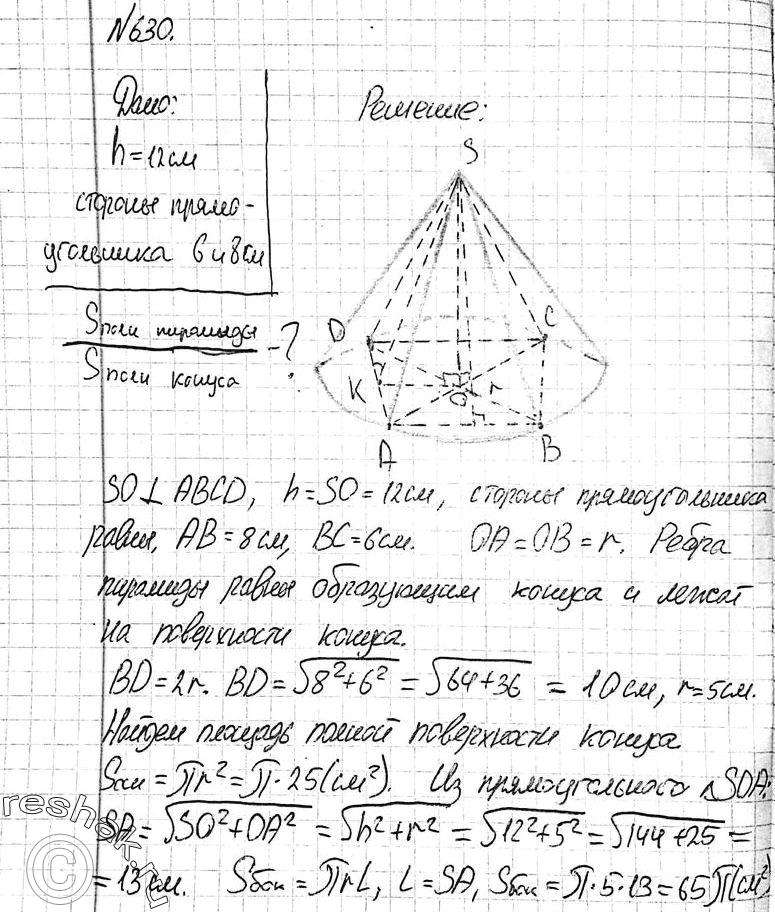 №630.
Дано:
h = 12 см
стороны прямо-
угольника 6 и 8 см
Sполн пирамиды
Sполн конуса
- ?
Решение:
S
D
C
K
O
r
A
B
SO ⊥ ABCD, h = SO = 12 см, стороны прямоугольника
равны, AB = 8 см, BC = 6 см. OA = OB = r. Ребра
пирамиды равны образующим конуса и лежат
на поверхности конуса.
BD = 2r. BD = √8²+6² = √64+36 = 10 см, r = 5 см.
Найдем площадь полной поверхности конуса
Sосн = πr² = π·25 (см²). Из прямоугольного △SOA:
SA = √SO²+OA² = √h²+r² = √12²+5² = √144+25 =
= 13 см. Sбок = πrL, L = SA, Sбок = π·5·13 = 65π (см²)
reshak.ru
©